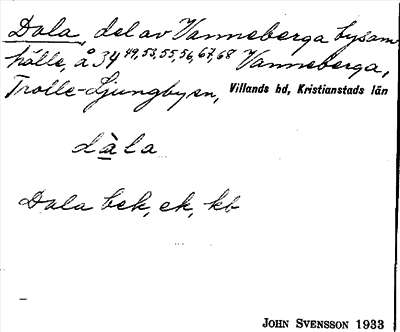 Dala, del av Vanneberga bysam-
hälle, å 34 49,53,55,56,67,68 Vanneberga,
Trolle-Ljungby sn, Villands hd, Kristianstads län
dàla
Dala bek, ek, kb
JOHN SVENSSON 1933